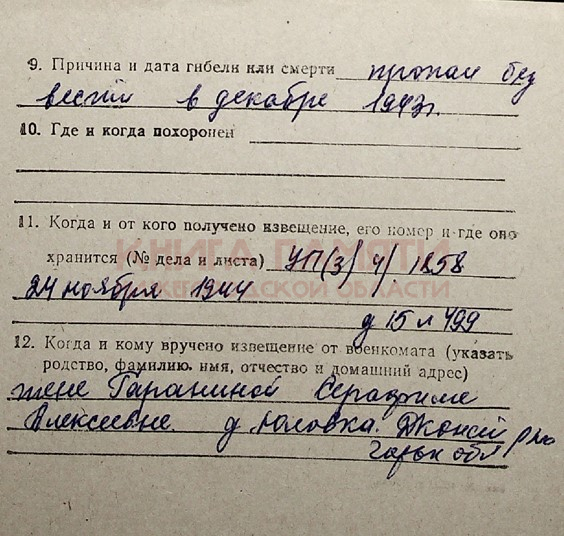 9. Причина и дата гибели или смерти пропал без
вести в декабре 1943г.
10. Где и когда похоронен
11. Когда и от кого получено извещение, его номер и где оно
КНИГА ПАМЯТИ
хранится (№ дела и листа) УП(3)/4/1858
НИЖЕГОРОДСКОЙ ОБЛАСТИ
24 ноября 1944
д 15 л 499
12. Когда и кому вручено извещение от военкомата (указать
родство, фамилию, имя, отчество и домашний адрес)
жене Гараниной Серафиме
Алексеевне. д
Горьк обл